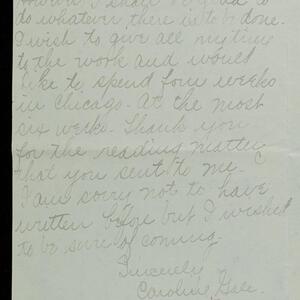 I shall be glad to
do whatever there is to be done.
I wish to give all my time
to the work and would
like to spend four weeks
in Chicago. At the most
six weeks. Thank you
for the reading matter
that you sent to me.
I am sorry not to have
written before but I wished
to be sure of coming.
Sincerely
Caroline Gale.